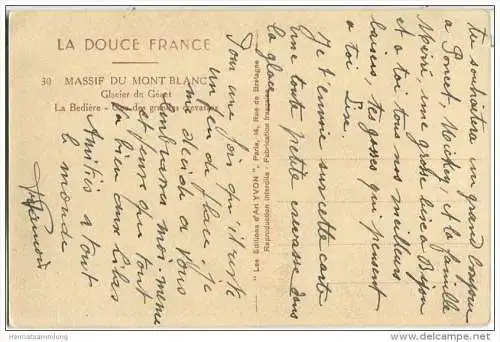 LA DOUCE FRANCE
30 MASSIF DU MONT BLANC
Glacier du Géant
La Bedière - Une des grandes crevasses
Pour une fois qu'il reste
un peu de place. Je
me décide à vous
embrasser moi-même
et pense que tout
va bien aux
Amitiés à tout
le monde
"Les Editions d'Art YVON", Paris, 15, Rue de Bretagne
Reproduction interdite - Fabrication française
tu souhaitera un grand bonjour
a Poncet, Mickey, et la famille
une grosse bise a
et a toi tous nos meilleurs
baisers, tes gosses qui pensent
a toi Lise.
Je t'envoie sur cette carte
une toute petite crevasse dans
la glace
Heimatsammlung
www.delcampe.net